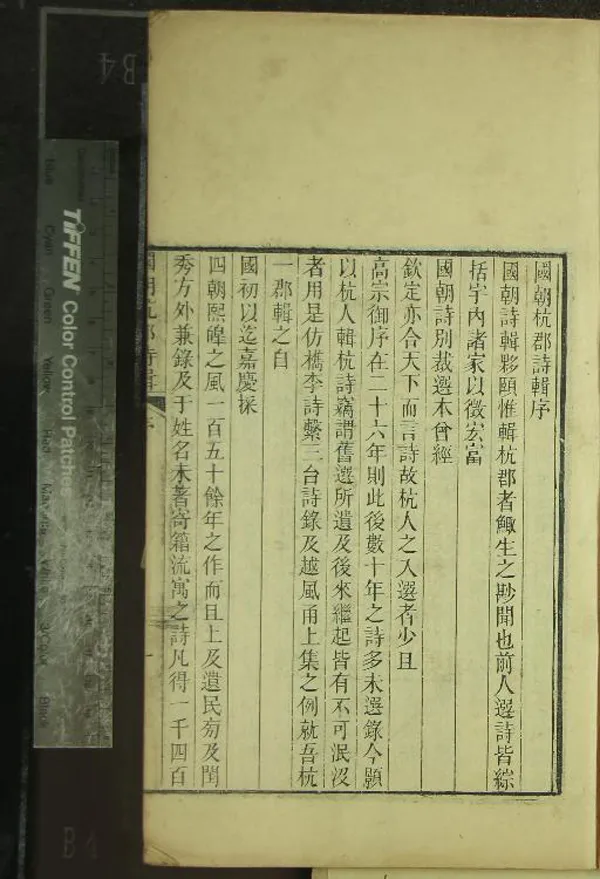 國朝杭郡詩輯序
國朝詩輯夥頤惟輯杭郡者鯫生之尠聞也前人選詩皆綜
括宇內諸家以徵宏富
國朝詩別裁選本曾經
欽定亦合天下而言詩故杭人之入選者少且
高宗御序在二十六年則此後數十年之詩多未選錄今顥
以杭人輯杭詩竊謂舊選所遺及後來繼起皆有不可泯沒
者用是仿檇李詩繫三台詩錄及越風甬上集之例就吾杭
一郡輯之自
國初以迄嘉慶採
四朝熙皥之風一百五十餘年之作而且上及遺民旁及閨
秀方外兼錄及于姓名未著寄籍流寓之詩凡得一千四百
國朝杭郡詩輯 序
一
TIFFEN Color Control Patches
Blue Cyan Green Yellow Red Magenta White 3/Color Black
B4
B4